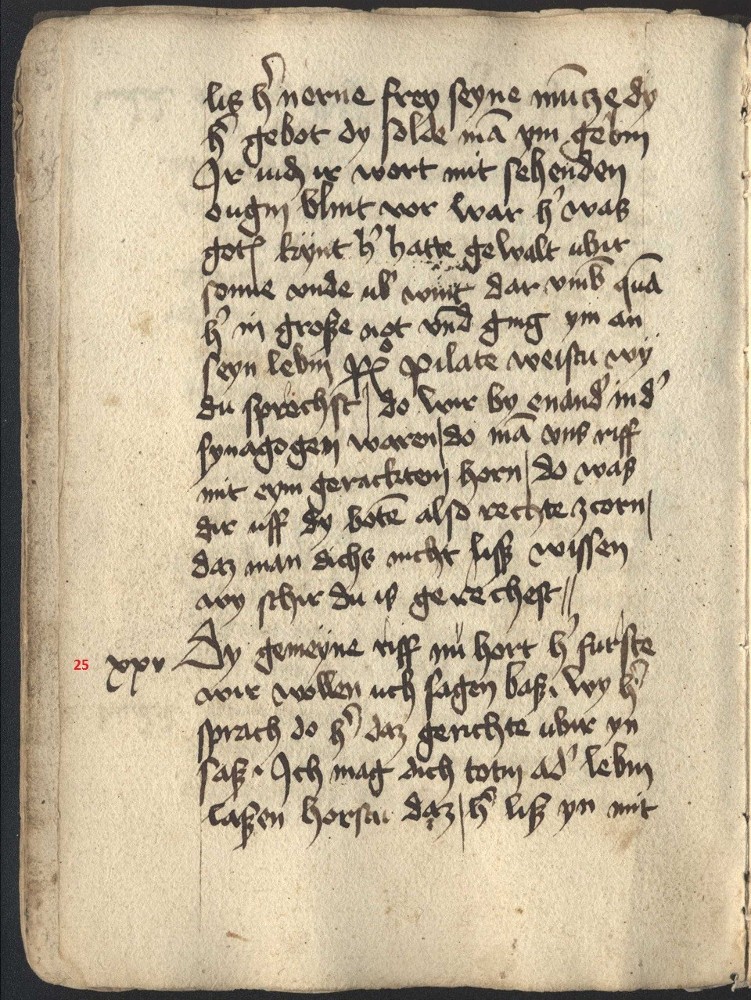 lisz h' nerne frey seyne mūcze dy
h' gebot dy solde mā ym gebin
Ir iudē ir wort mit sehenden
ougin blint vor war h' was
gotꝭ kynt h' hatte gewalt ubir
sonne unde ub' wint dar vmb quā
h' in große not vnd ging ym an
seyn lebin Pilate weistu wy
du sprechst | do wir by enand' in d'
synagogen waren | do mā vns riff
mit eym gerackten horn | do was
dir uff dy botē also rechte zcorn |
daz man dichs nicht liß wissen
wy schir du is gerechest //
25 xxv Dy gemeyne riff nu hort h' furste
wir wollen uch sagen baß. wy h'
sprach do h' daz gerichte ubir yn
saß. Ich mag dich totin ad' lebin
laßen horstu daz | h' liß yn mit